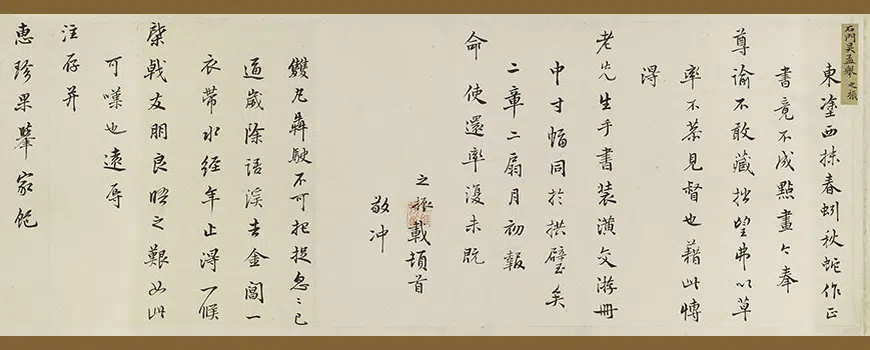 石門吳孟舉 之振
東塗西抹春蚓秋蛇作正
書竟不成點畫今奉
尊諭不敢藏拙望弗以草
率不恭見督也藉此博
得
老先生手書裝潢交游冊
中寸幅同於拱璧矣
二章二扇月初報
命使還率復未既
之振載頓首
敬沖
雙凡犇駛不可把捉忽〻已
逼歲除語溪去金閶一
衣帶水經年止得一候
棨戟友朋良晤之艱如此
可嘆也遠辱
注存并
惠珍果舉家飽